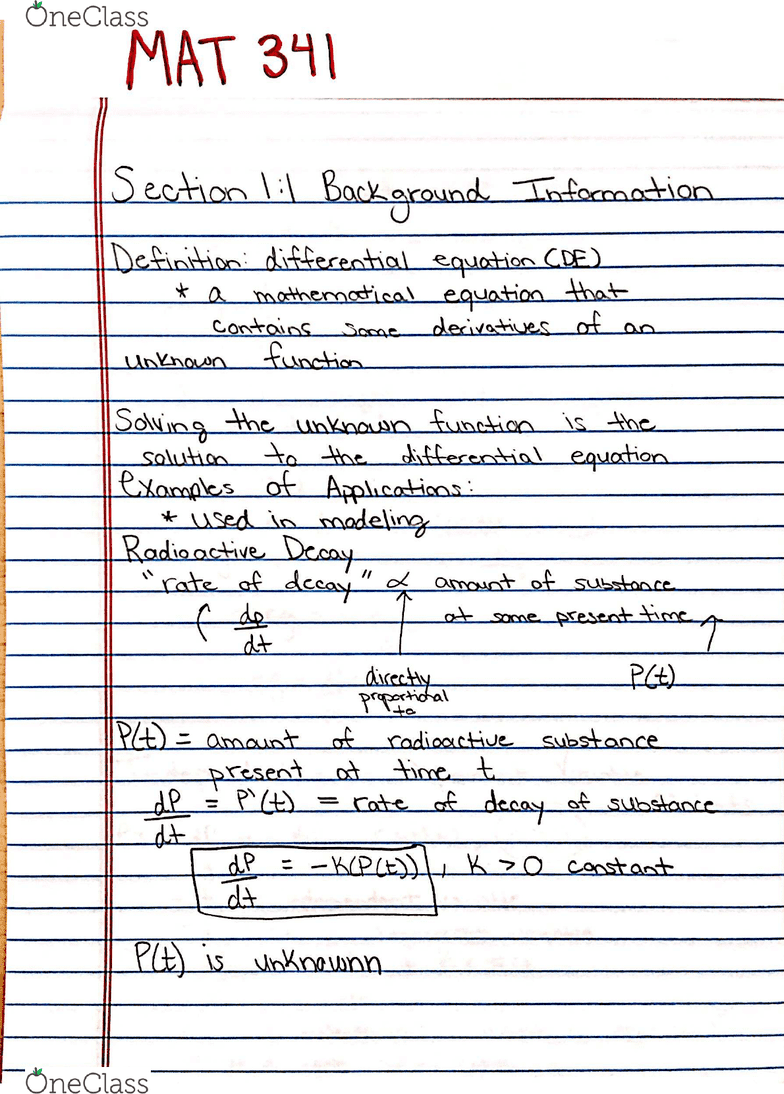 OneClass
MAT 341
Section 1:1 Background Information
Definition: differential equation (DE)
* a mathematical equation that
contains some derivatives of an
unknown function
Solving the unknown function is the
solution to the differential equation
Examples of Applications:
* used in modeling
Radioactive Decay
"rate of decay" ∝ amount of substance
( dp/dt ↑ at some present time ↑
directly proportional to
P(t)
P(t) = amount of radioactive substance
present at time t
dP/dt = P'(t) = rate of decay of substance
dP/dt = -K(P(t)), K > 0 constant
P(t) is unknownn
OneClass